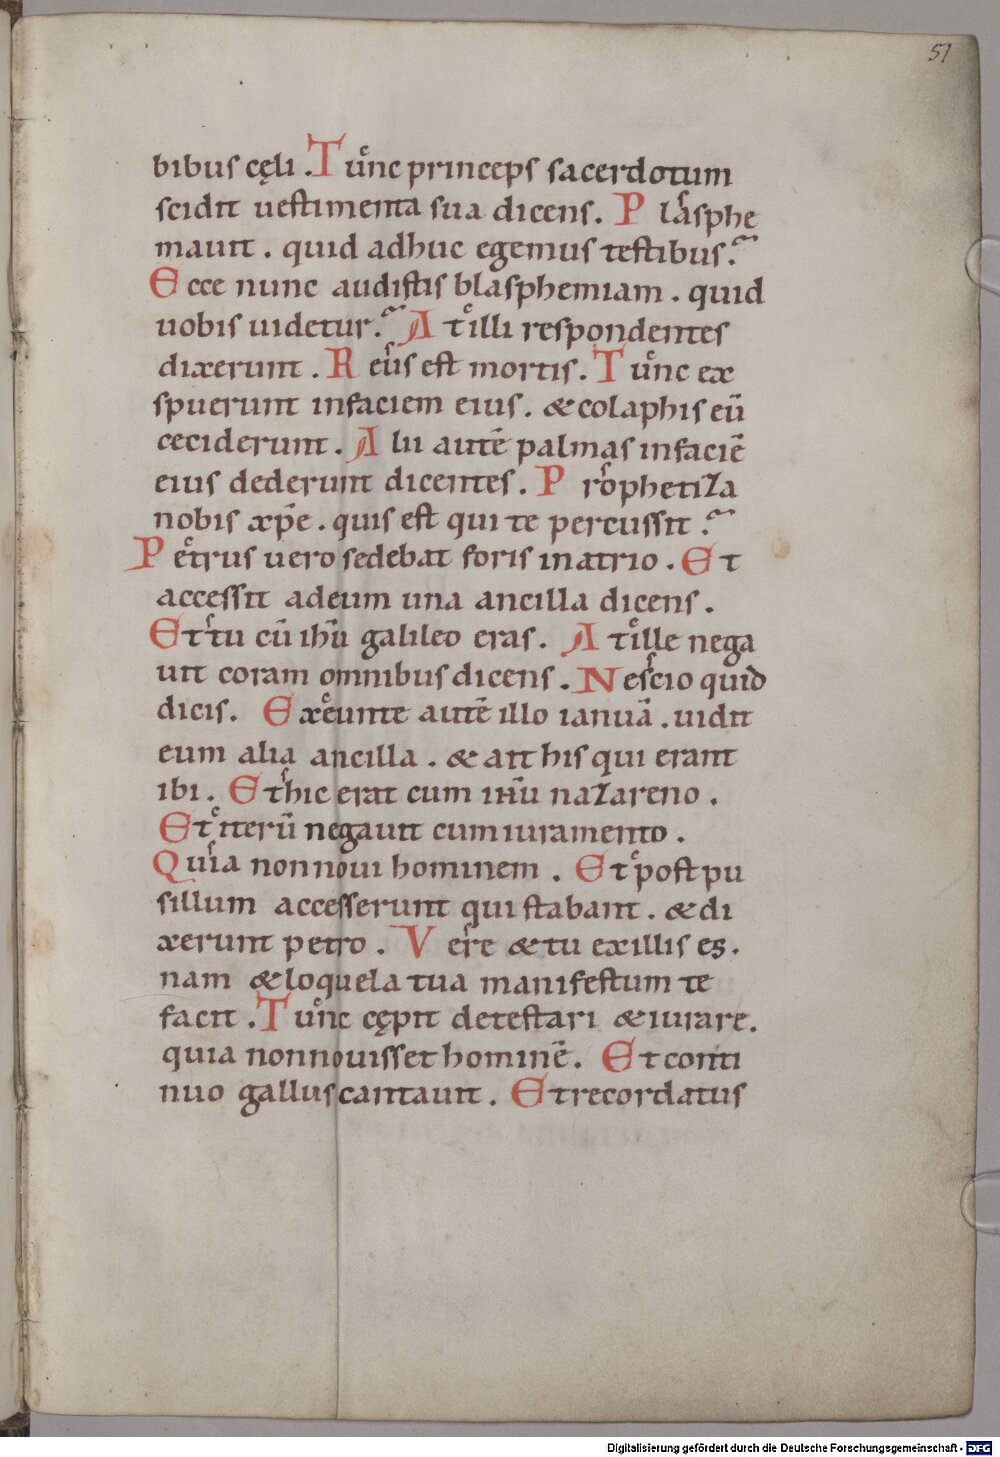 51
bibus cęli . Tunc princeps sacerdotum
scidit uestimenta sua dicens . P lasphe
mauit . quid adhuc egemus testibus .~
Ecce nunc audistis blasphemiam . quid
uobis uidetur .~ At illi respondentes
dixerunt . Reus est mortis . Tunc ex
spuerunt infaciem eius . & colaphis eū
ceciderunt . Alii autē palmas infaciē
eius dederunt dicentes . Prophetiza
nobis xp̄e . quis est qui te percussit .~
Petrus uero sedebat foris inatrio . Et
accessit adeum una ancilla dicens .
Et tu cū ihū galileo eras . At ille nega
uit coram omnibus dicens . Nescio quid
dicis . Exeunte autē illo ianuā . uidit
eum alia ancilla . & ait his qui erant
ibi . Et hic erat cum ihū nazareno .
Et iterū negauit cum iuramento .
Quia non noui hominem . Et post pu
sillum accesserunt qui stabant . & di
xerunt petro . Vere & tu exillis es .
nam & loquela tua manifestum te
facit . Tunc cępit detestari & iurare .
quia non nouisset hominē . Et conti
nuo gallus cantauit . Et recordatus
Digitalisierung gefördert durch die Deutsche Forschungsgemeinschaft - DFG